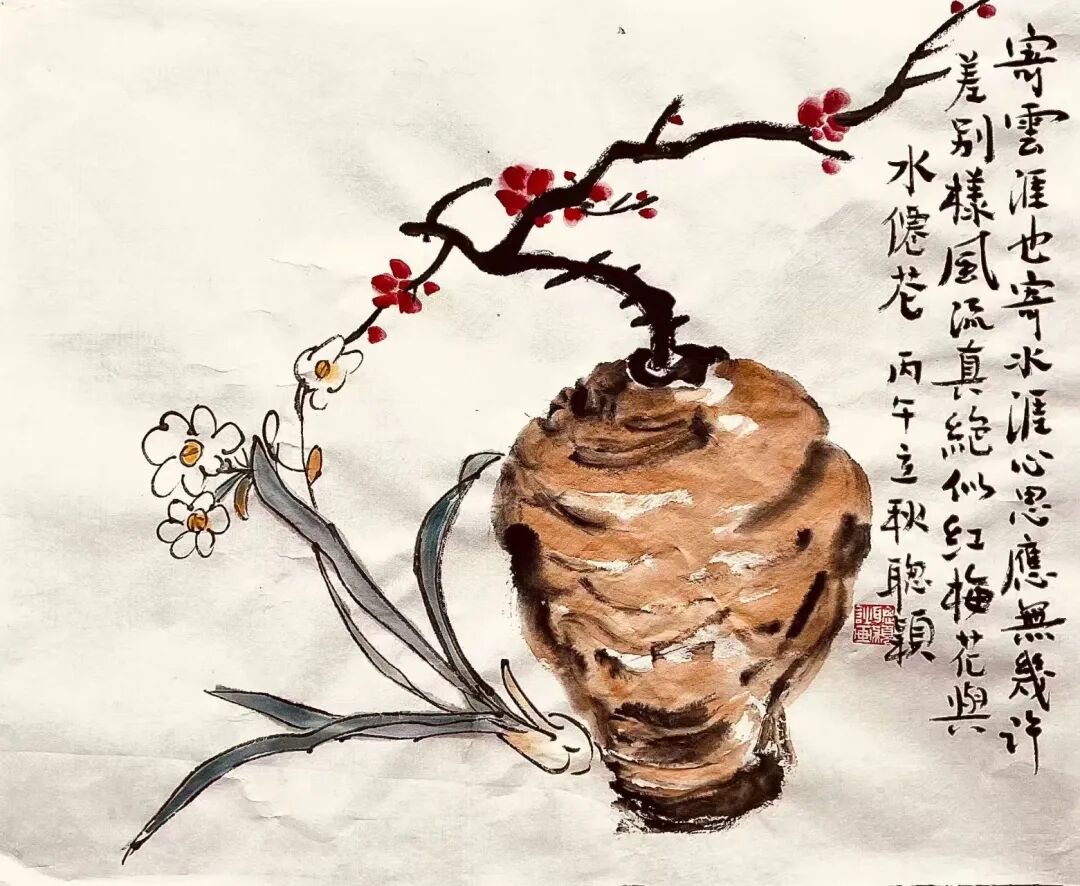 寄雲涯也寄水涯心思應無幾許
差別樣風流真絕似紅梅花與
水僊花 丙午立秋聰穎